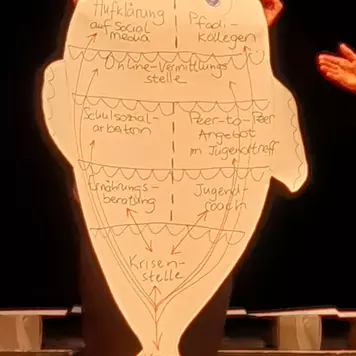 Aufklärung
auf Social
media
Pfadi-
kollegen
Online-Vermittlungs
stelle
Schulsozial-
arbeiterin
Peer-to-Peer
Angebot
im Jugendtreff
Ernährungs-
beratung
Jugend-
coach
Krisen-
stelle